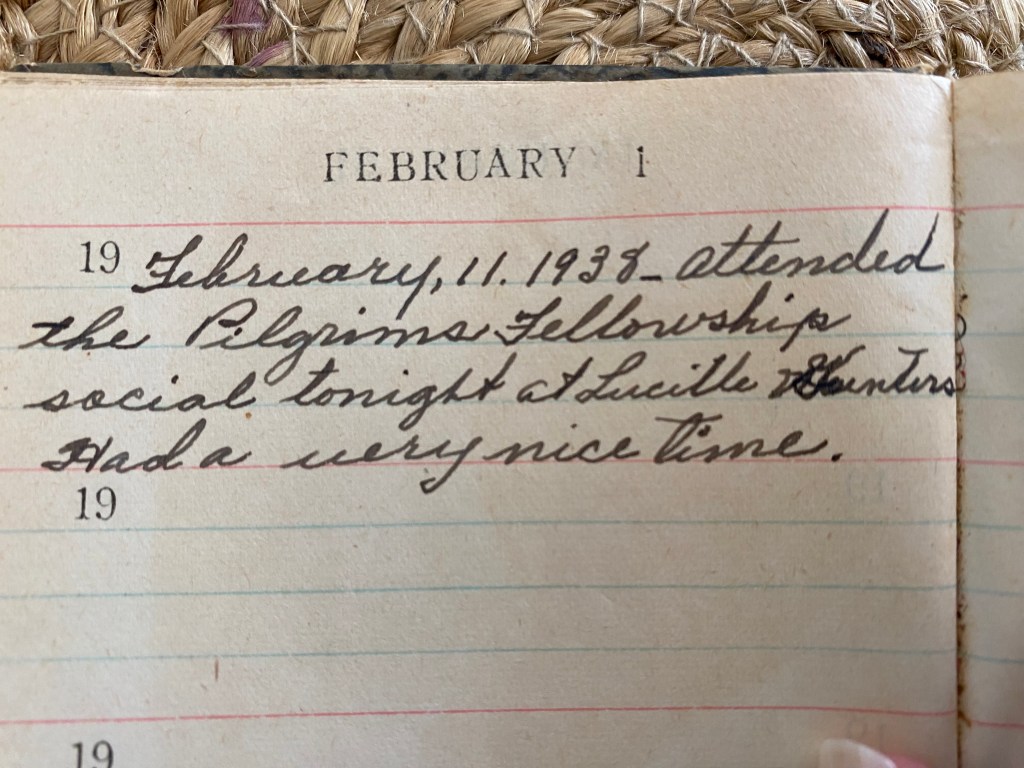 FEBRUARY 1
19 February, 11. 1938 - attended
the Pilgrims Fellowship
social tonight at Lucille
Had a very nice time.
19
19